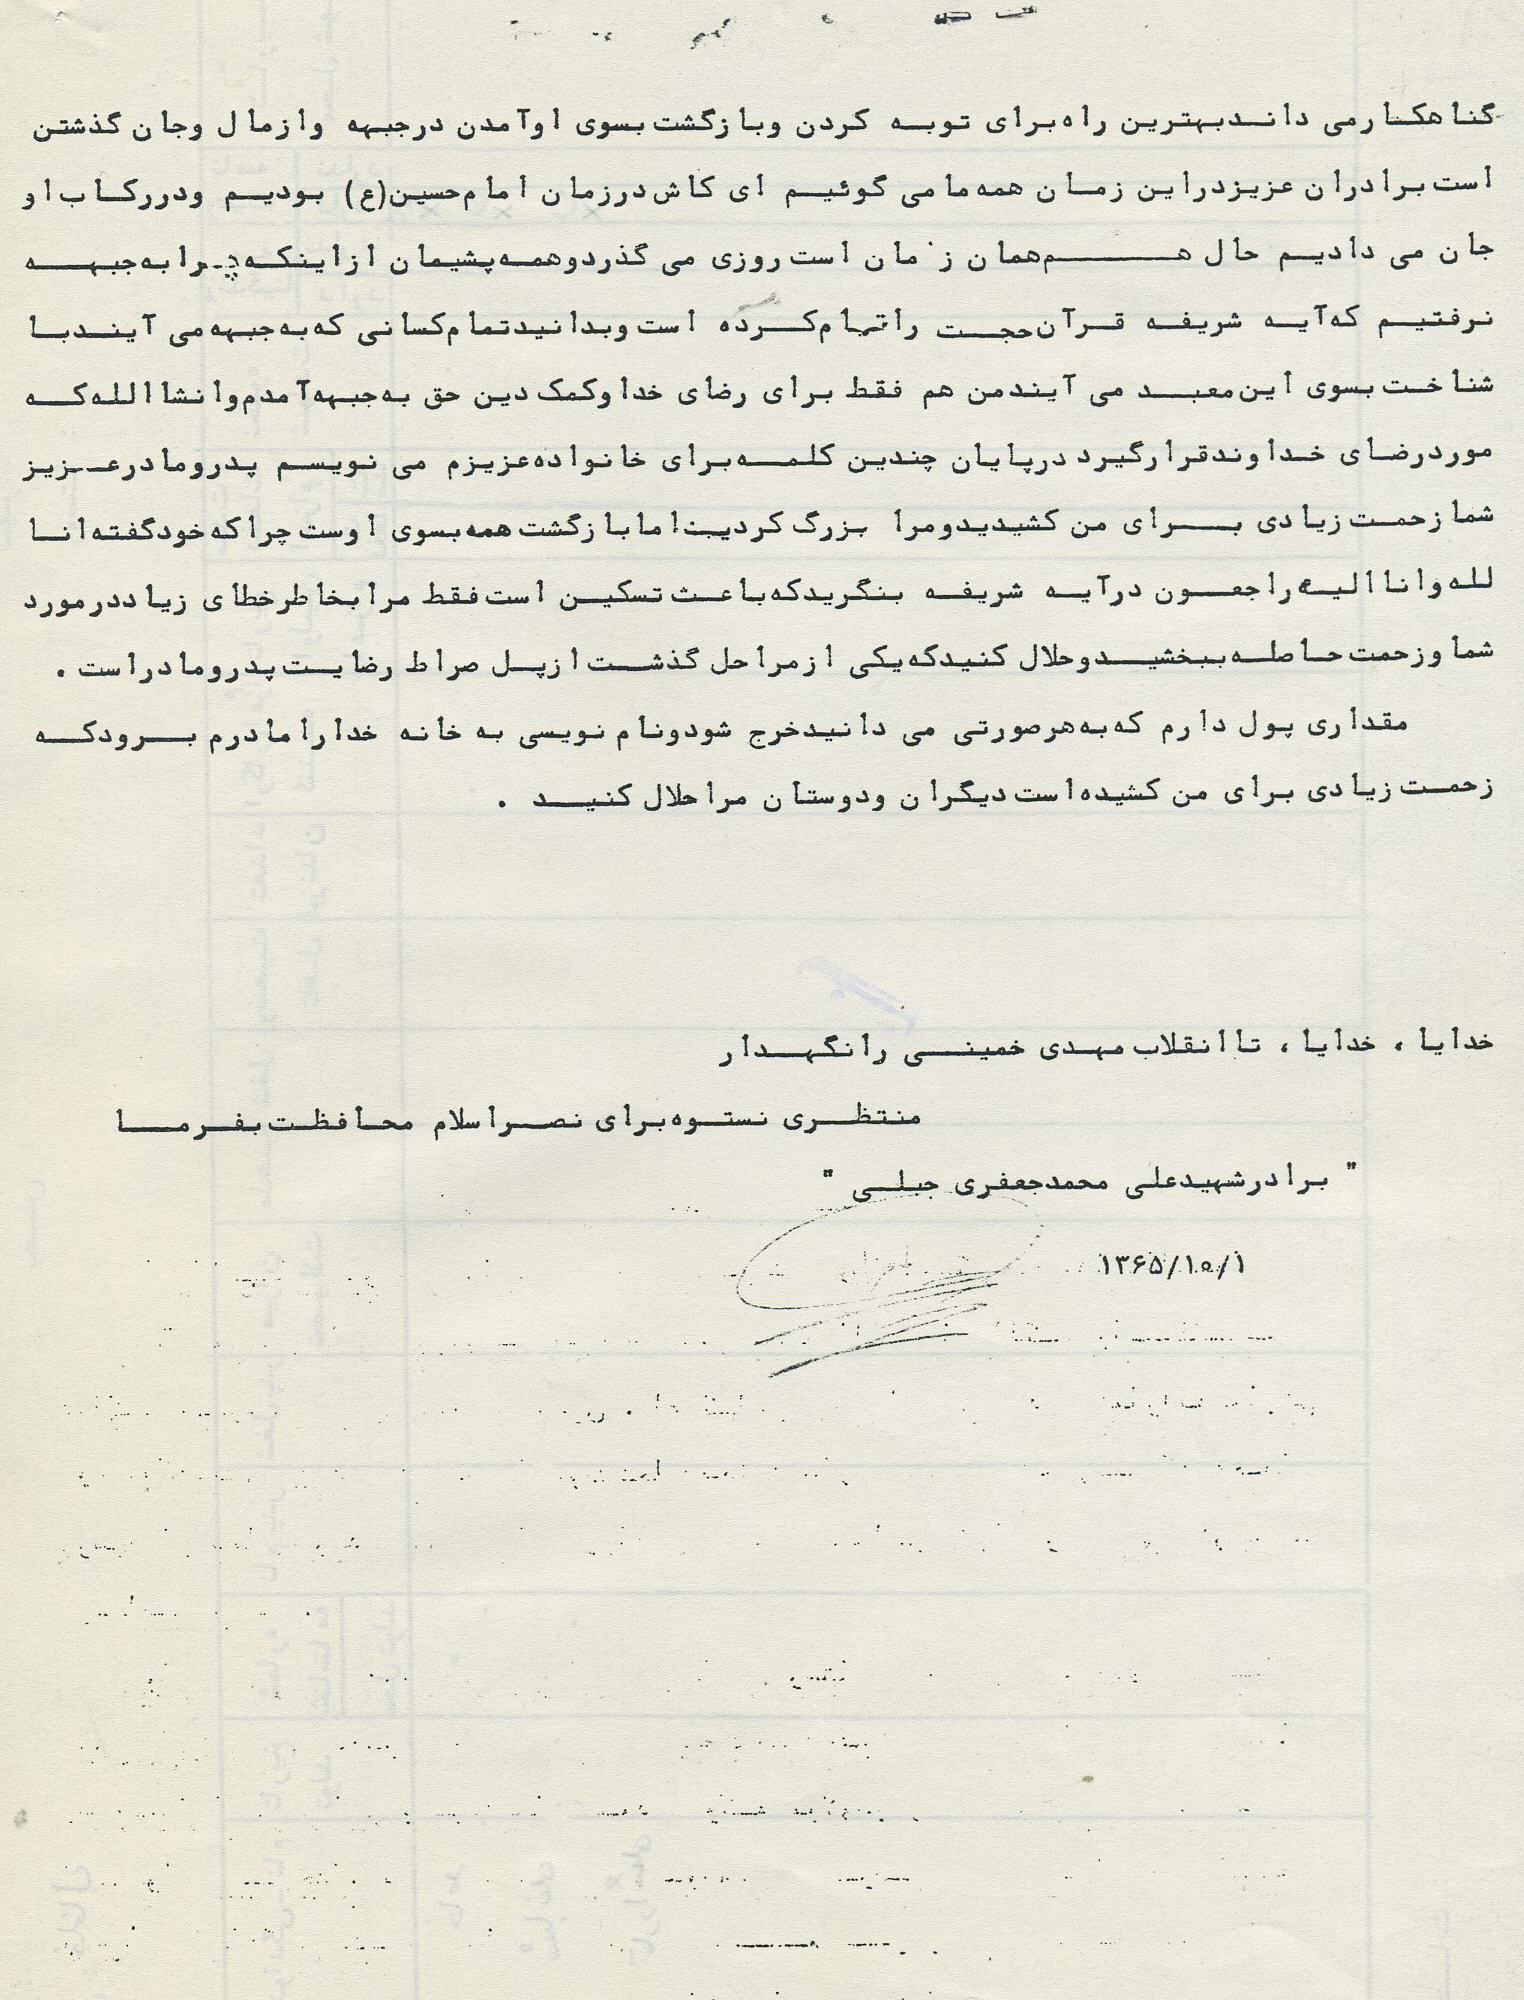 گناهکارمی داندبهترین راه‌برای توبه کردن وبازگشت بسوی اوآمدن درجبهه وازمال وجان گذشتن
است برادران عزیزدراین زمان همه‌مامی گوئیم ای کاش درزمان امام‌حسین(ع) بودیم ودررکاب او
جان می دادیم حال هم‌همان زمان است روزی می گذردوهمه‌پشیمان ازاینکه‌چرابه‌جبهه
نرفتیم که‌آیه شریفه قرآن‌حجت راتمام‌کرده است وبدانیدتمام‌کسانی که‌به‌جبهه‌می آیندبا
شناخت بسوی این‌معبد می آیندمن هم فقط برای رضای خداوکمک دین حق به‌جبهه‌آمدم‌وانشاالله‌که
موردرضای خداوندقرارگیرد درپایان چندین کلمه‌برای خانواده‌عزیزم می نویسم پدرومادرعزیز
شمازحمت زیادی برای من کشیدیدومرا بزرگ کردیداما بازگشت همه‌بسوی اوست چراکه‌خودگفته‌انا
لله‌واناالیه‌راجعون درآیه شریفه بنگریدکه‌باعث تسکین است فقط مرابخاطرخطای زیاددرمورد
شما وزحمت حاصله‌ببخشیدوحلال کنیدکه‌یکی ازمراحل گذشت ازپل صراط رضایت پدرومادراست .
مقداری پول دارم که‌به‌هرصورتی می دانیدخرج شودونام نویسی به خانه خدارامادرم برودکه
زحمت زیادی برای من کشیده‌است دیگران ودوستان مراحلال کنید .
خدایا ، خدایا ، تاانقلاب مهدی خمینی رانگهدار
منتظری نستوه‌برای نصراسلام محافظت بفرما
" برادرشهیدعلی محمدجعفری جبلی "
۱۳۶۵/۱۰/۱